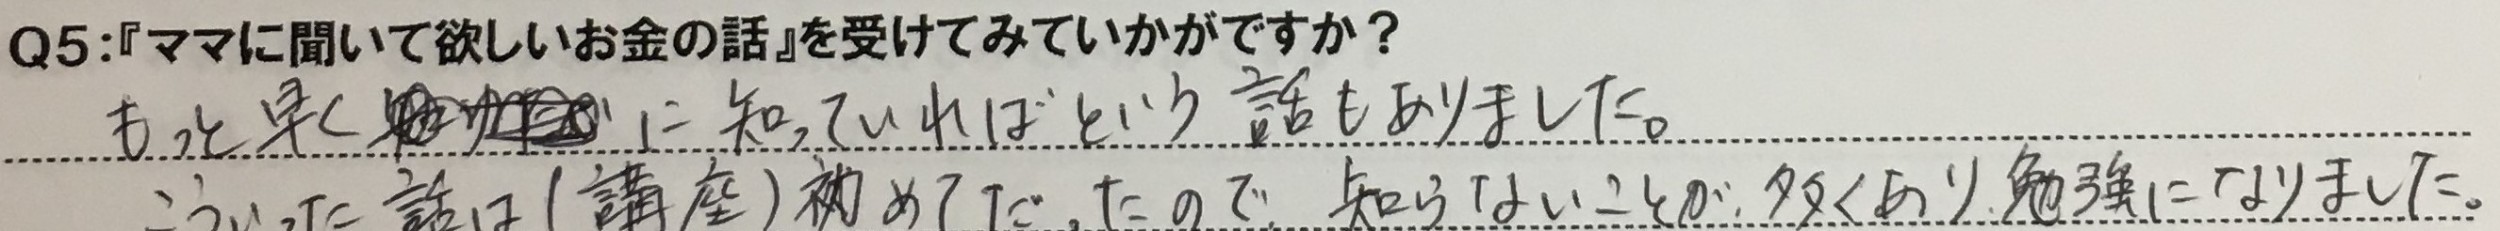 Q5:『ママに聞いて欲しいお金の話』を受けてみていかがですか？
もっと早くに知っていればという話もありました。
こういった話は(講座)初めてだったので、知らないことが多くあり、勉強になりました。